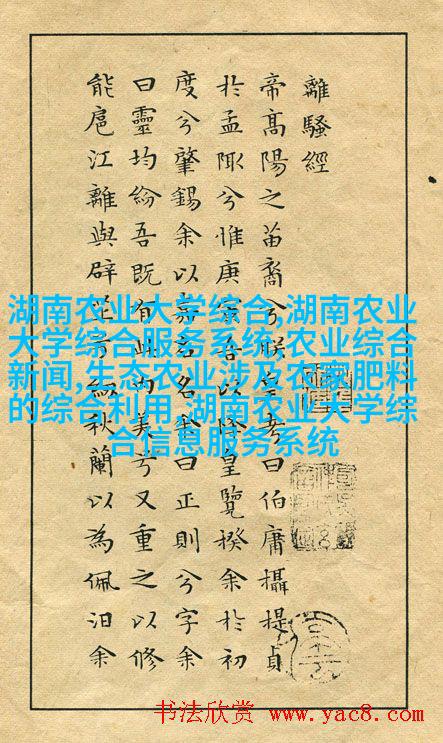 離騷經
帝高陽之苗裔兮朕皇考曰伯庸攝提貞
於孟陬兮惟庚寅吾以降皇覽揆余於初
度兮肇錫余以嘉名名余曰正則兮字余
曰靈均紛吾既有此內美兮又重之以修
能扈江離與辟芷兮紉秋蘭以為佩汩余
湖南农业大学综合,湖南农业
大学综合服务系统,农业综合
新闻,生态农业涉及农家肥料
的综合利用,湖南农业大学综
合信息服务系统
书法欣赏 www.yac8.com